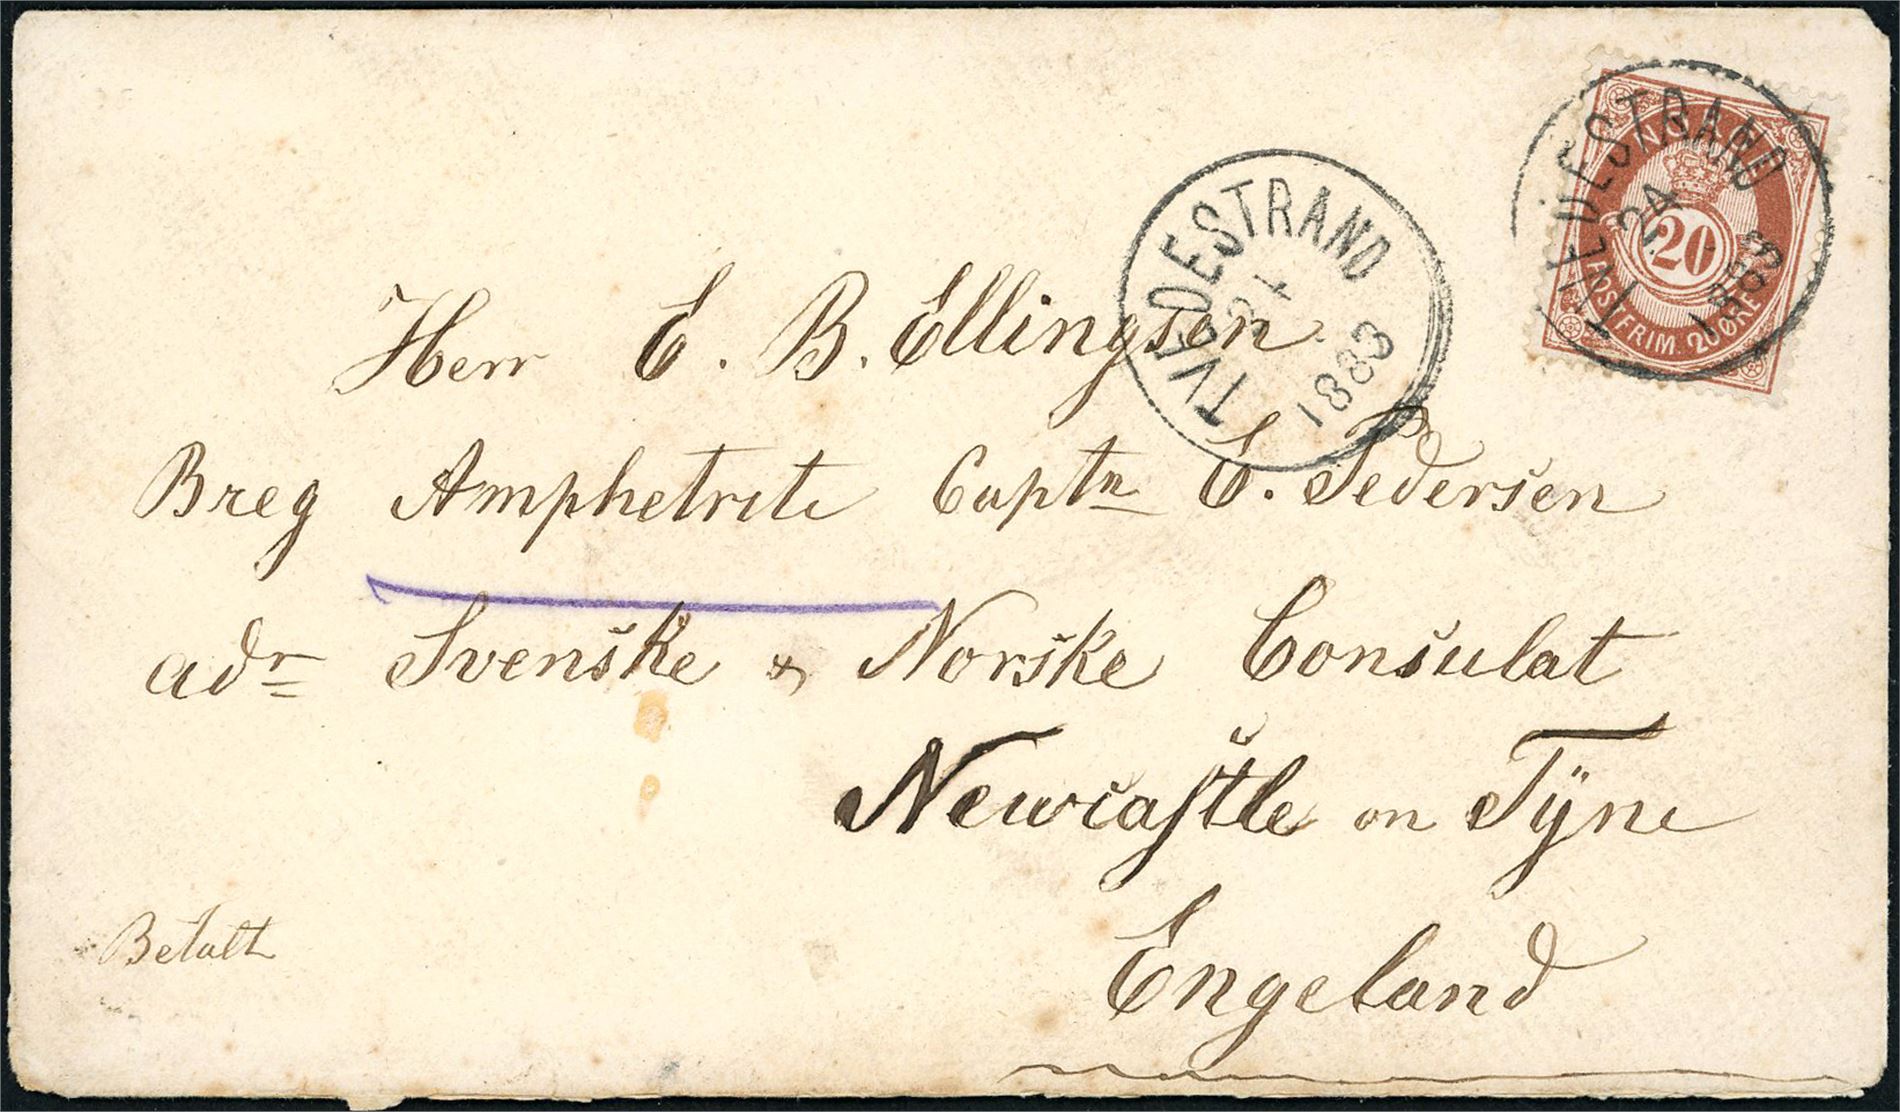 TVEDESTRAND
24
1883
NORGE
20
POSTFRIM. 20 ØRE
TVEDESTRAND
24
1883
Herr E. B. Ellingsen.
Breg Amphetrite Captn E. Pedersen
adr Svenske & Norske Consulat
Newcastle on Tÿne
Betalt
Engeland